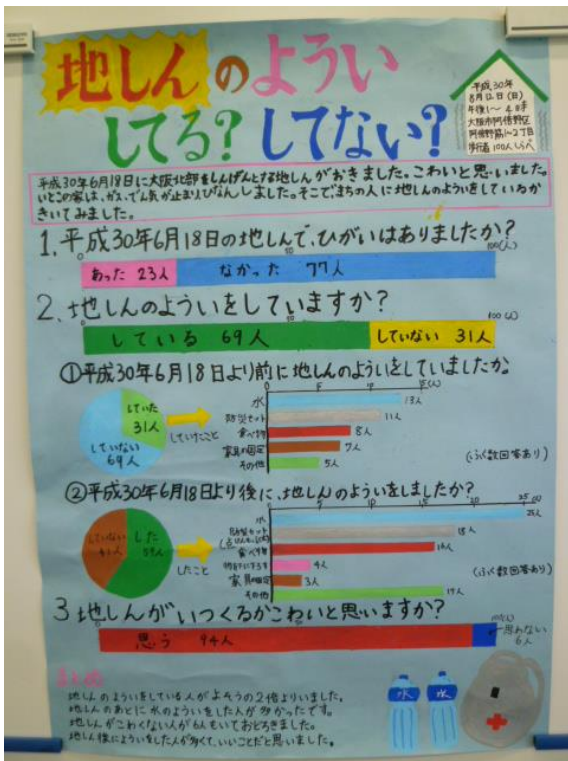 地しんのようい
してる？してない？
平成30年
8月12日（日）
午後1〜4時
大阪市阿倍野区
阿倍野筋1〜2丁目
歩行者100人しらべ
平成30年6月18日に大阪北部をしんげんとする地しんがおきました。こわいと思いました。
いとこの家は、ガス、でん気が止まり、ひなんしました。そこで、まちの人に地しんのよういをしているか
きいてみました。
1.平成30年6月18日の地しんで、ひがいはありましたか？
0 50 100(人)
あった 23人 なかった 77人
2.地しんのよういをしていますか？
0 50 100(人)
している 69人 していない 31人
①平成30年6月18日より前に地しんのよういをしていましたか。
していた
31人
していない
69人
していたこと
0 5 10 15(人)
水 13人
防災セット 11人
食べ物 8人
家具の固定 7人
その他 5人
(ふく数回答あり)
②平成30年6月18日より後に、地しんのよういをしましたか？
した
59人
していない
41人
したこと
0 5 10 15 20 25(人)
水
防災セット 18人
食べ物 16人
4人
家具の固定 3人
その他
(ふく数回答あり)
3.地しんがいつくるかこわいと思いますか？
100(人)
思う 94人
思わない
6人
まとめ
地しんのよういをしている人がよそうの2倍よりいました。
地しんのあとに水のよういをした人が多かったです。
地しんがこわくない人が6人もいておどろきました。
地しん後によういをした人が多くて、いいことだと思いました。
水 水